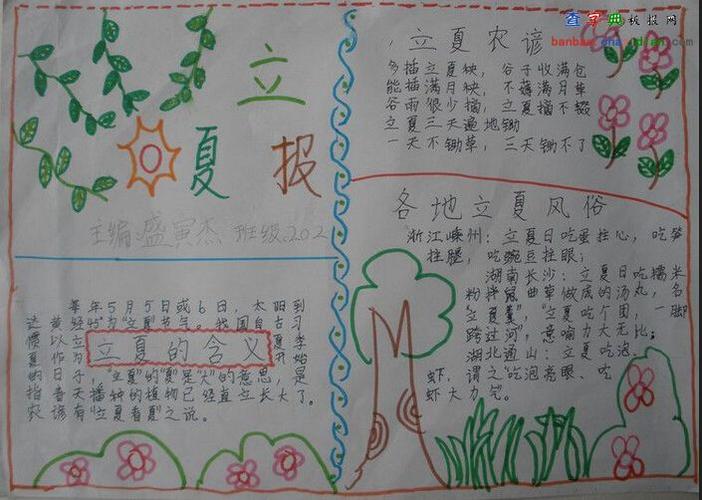 查字典板报网
立
夏 报
主编 盛寅杰 班级202
每年5月5日或6日，太阳到
立夏的含义
的日子，“立夏”的“夏”是“大”的意思，是
指春天播种的植物已经直立长大了。
农谚有“立夏看夏”之说。
立夏农谚
多插立夏秧，谷子收满仓
能插满月秧，不薅满月草
谷雨很少摘，立夏摘不辍
立夏三天遍地锄
一天不锄草，三天锄不了
各地立夏风俗
浙江嵊州：立夏日吃蛋拄心，吃笋
拄腿，吃豌豆拄眼；
湖南长沙：立夏日吃糯米
粉拌鼠曲草做成的汤丸，名
“立夏羹”，“立夏吃个团，一脚
跨过河”，意喻力大无比；
湖北通山：立夏吃泡
虾，谓之“吃泡亮眼，吃
虾大力气。